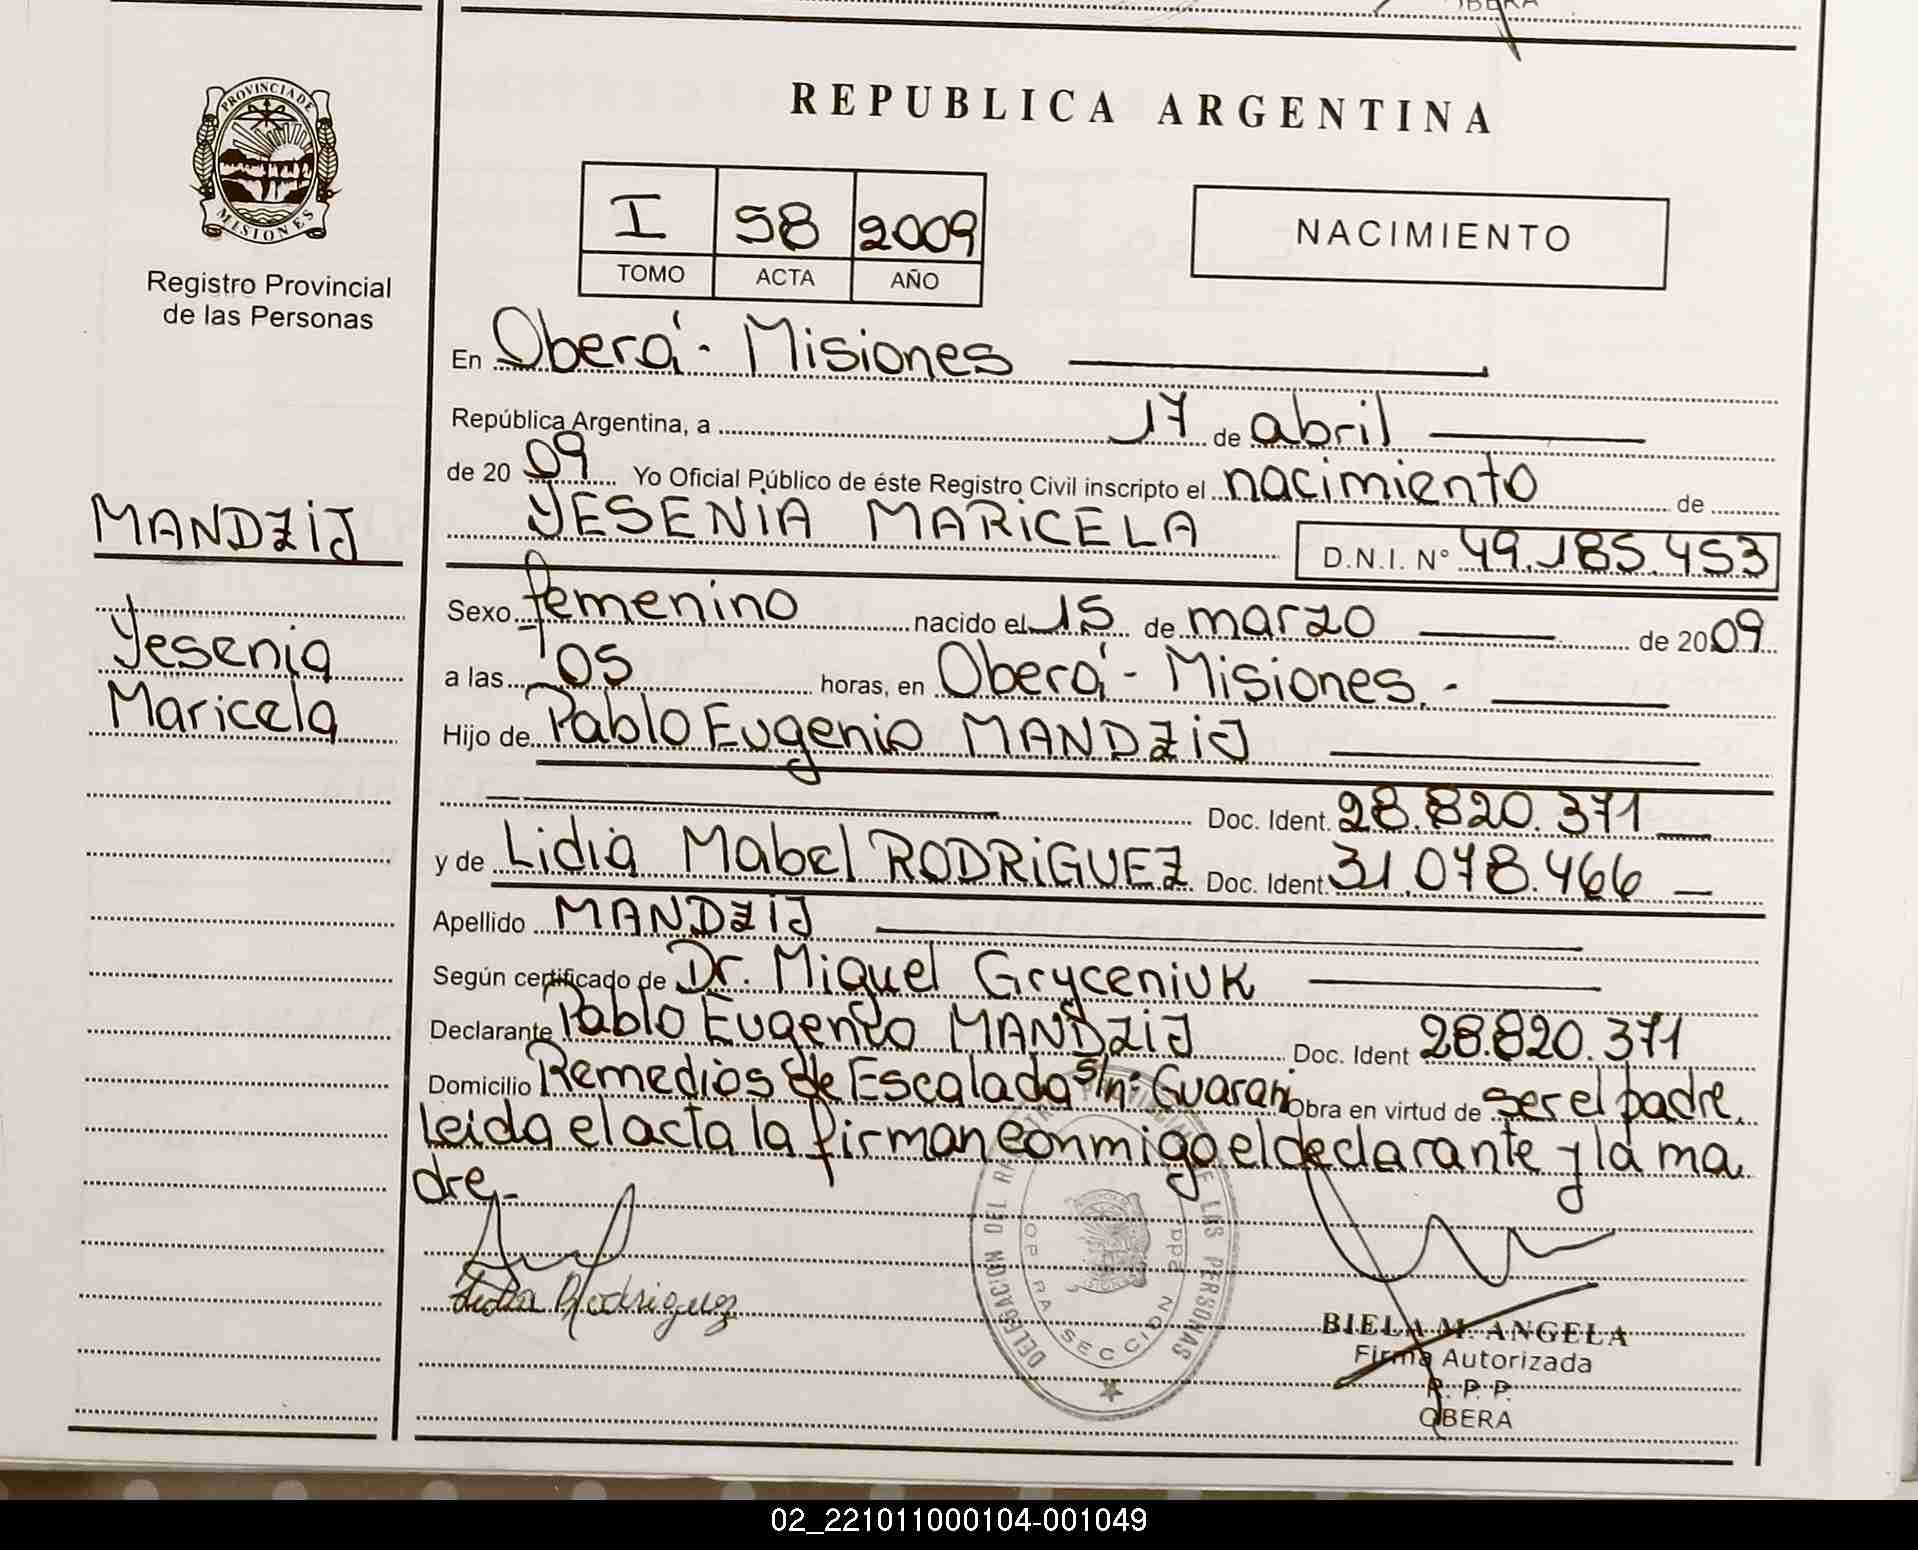 OBERA
PROVINCIA DE
MISIONES
Registro Provincial
de las Personas
REPUBLICA ARGENTINA
I 58 2009
TOMO ACTA AÑO
NACIMIENTO
En Oberá - Misiones
República Argentina, a 17 de abril
de 2009 Yo Oficial Público de éste Registro Civil inscripto el nacimiento de
YESENIA MARICELA D.N.I. N° 49.185.453
MANDZIJ
Yesenia
Maricela
Sexo femenino nacido el 15 de marzo de 2009
a las 05 horas, en Oberá - Misiones.-
Hijo de Pablo Eugenio MANDZIJ
Doc. Ident. 28.820.371
y de Lidia Mabel RODRIGUEZ Doc. Ident. 31.078.466
Apellido MANDZIJ
Según certificado de Dr. Miguel Gryceniuk
Declarante Pablo Eugenio MANDZIJ Doc. Ident 28.820.371
Domicilio Remedios de Escalada s/n: Guaraní Obra en virtud de ser el padre.
Leida el acta la firman conmigo el declarante y la ma
dre.-
Lidia Rodriguez
DELEGACION DEL LAS PERSONAS
SECCION
BIELA M. ANGELA
Firma Autorizada
R. P. P.
OBERA
02_221011000104-001049